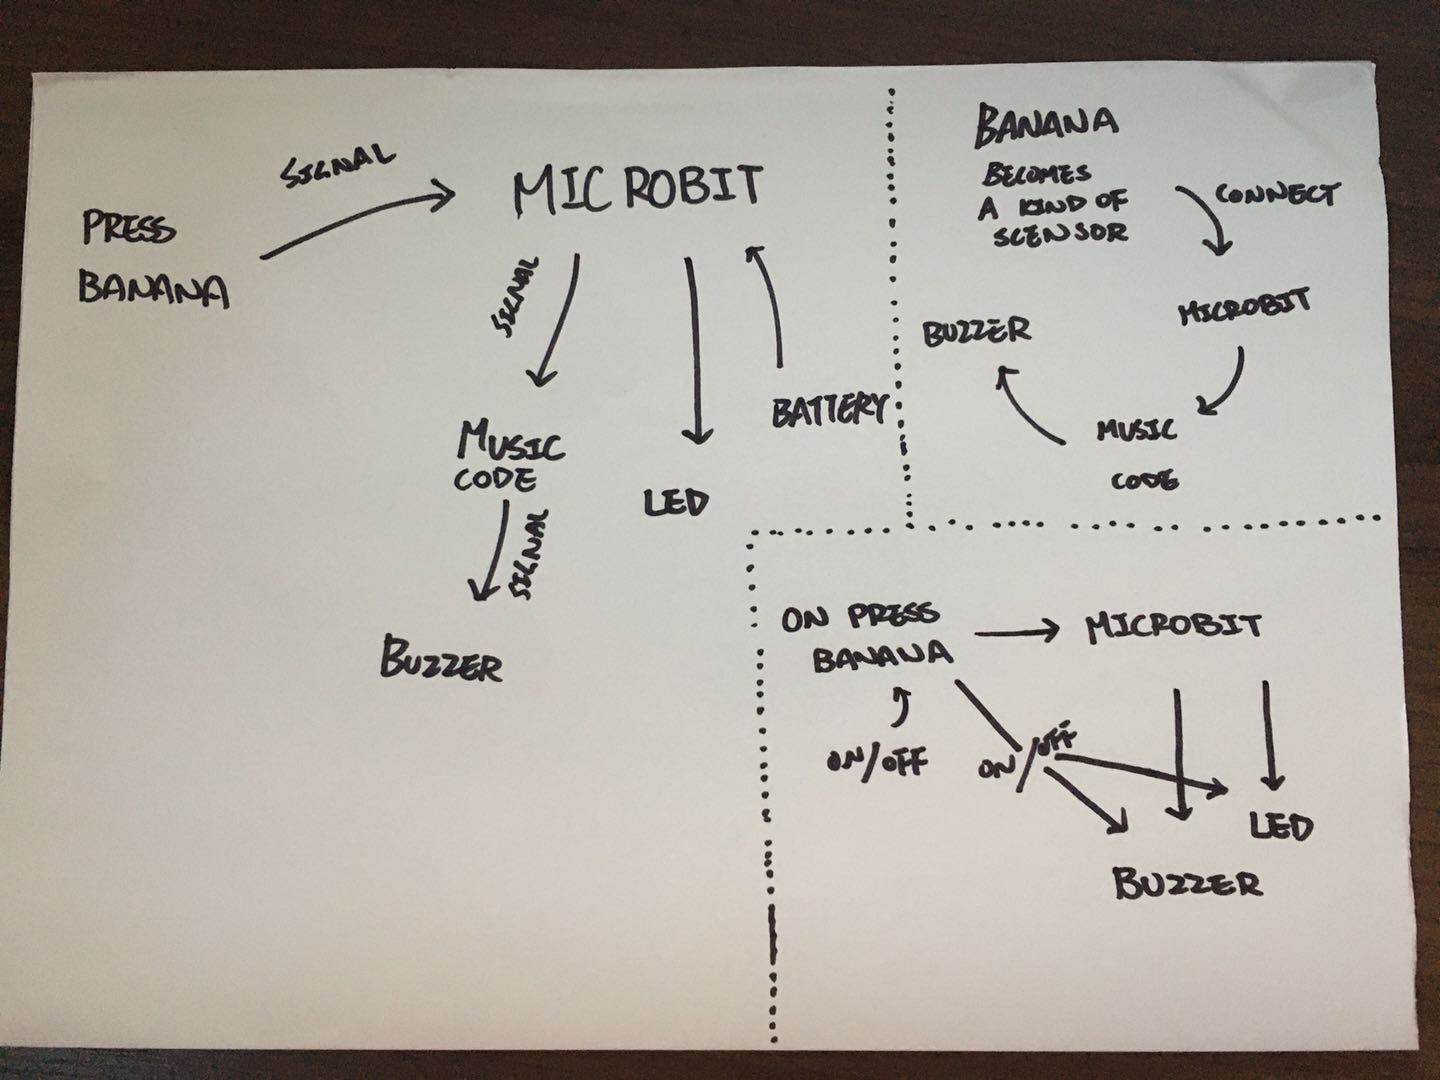 SIGNAL
PRESS
BANANA
MICROBIT
SIGNAL
MUSIC
CODE
SIGNAL
BUZZER
LED
BATTERY
BANANA
BECOMES
A KIND OF
SCENSOR
CONNECT
MICROBIT
MUSIC
CODE
BUZZER
ON PRESS
BANANA
MICROBIT
ON/OFF
ON/OFF
LED
BUZZER